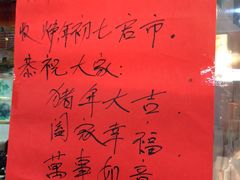 年初七启市。
恭祝大家:
猪年大吉.
阖家幸福.
萬事如意